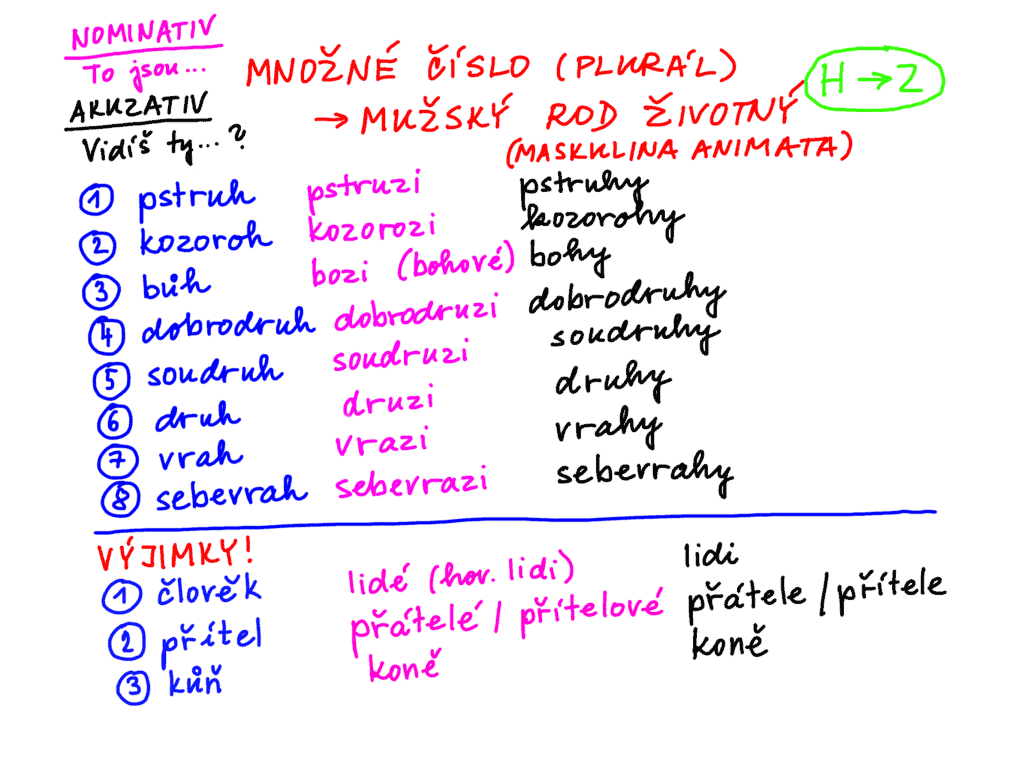 NOMINATIV
To jsou...
AKUZATIV
Vidíš ty...?
MNOŽNÉ ČÍSLO (PLURÁL)
→ MUŽSKÝ ROD ŽIVOTNÝ
(MASKULINA ANIMATA)
H → Z
1 pstruh pstruzi pstruhy
2 kozoroh kozorozi kozorohy
3 bůh bozi (bohové) bohy
4 dobrodruh dobrodruzi dobrodruhy
5 soudruh soudruzi soudruhy
6 druh druzi druhy
7 vrah vrazi vrahy
8 sebevrah sebevrazi sebevrahy
VÝJIMKY!
1 člověk lidé (hov. lidi) lidi
2 přítel přátelé / přítelové přátele / přítele
3 kůň koně koně